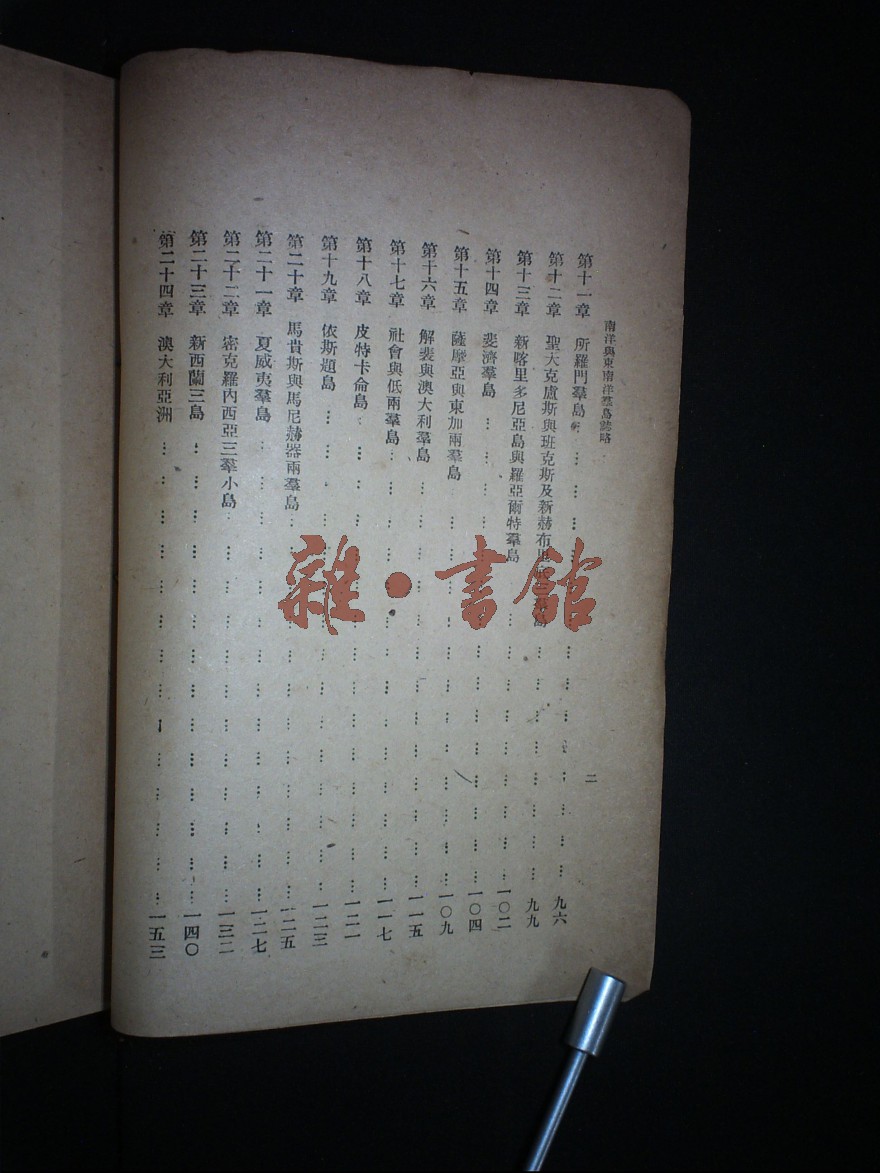 南洋與東南洋羣島誌略
二
第十一章 所羅門羣島 九六
第十二章 聖大克盧斯與班克斯及新赫布里 羣島 九九
第十三章 新喀里多尼亞島與羅亞爾特羣島 一〇二
第十四章 斐濟羣島 一〇四
第十五章 薩摩亞與東加兩羣島 一〇九
第十六章 解裴與澳大利羣島 一一五
第十七章 社會與低兩羣島 一一七
第十八章 皮特卡侖島 一二一
第十九章 依斯題島 一二三
第二十章 馬貴斯與馬尼赫器兩羣島 一二五
第二十一章 夏威夷羣島 一二七
第二十二章 密克羅內西亞三羣小島 一三二
第二十三章 新西蘭三島 一四〇
第二十四章 澳大利亞洲 一五三
雜·書館